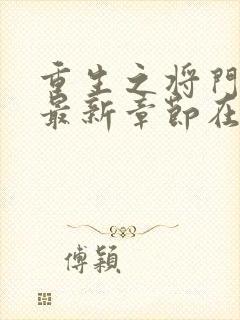 重生之将門
最新章節在
傅穎